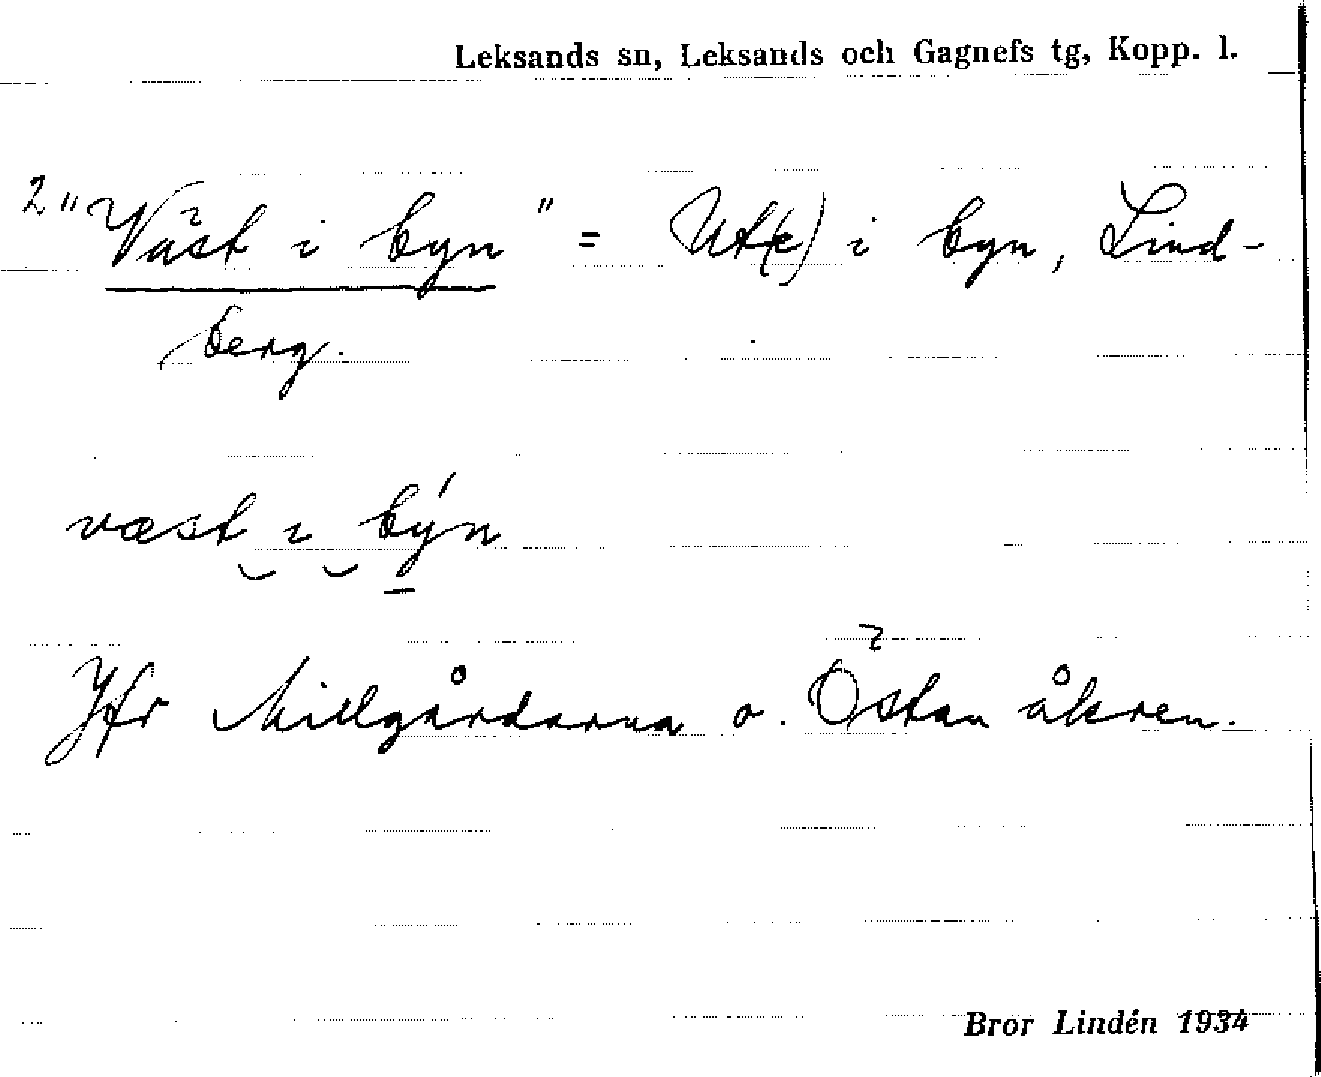 Leksands sn, Leksands och Gagnefs tg, Kopp. l.
2 "Väst i byn" = Ut(e) i byn, Lind-
berg.
væst i býn
Jfr Millgårdarna o. Östan åkren.
Bror Lindén 1934